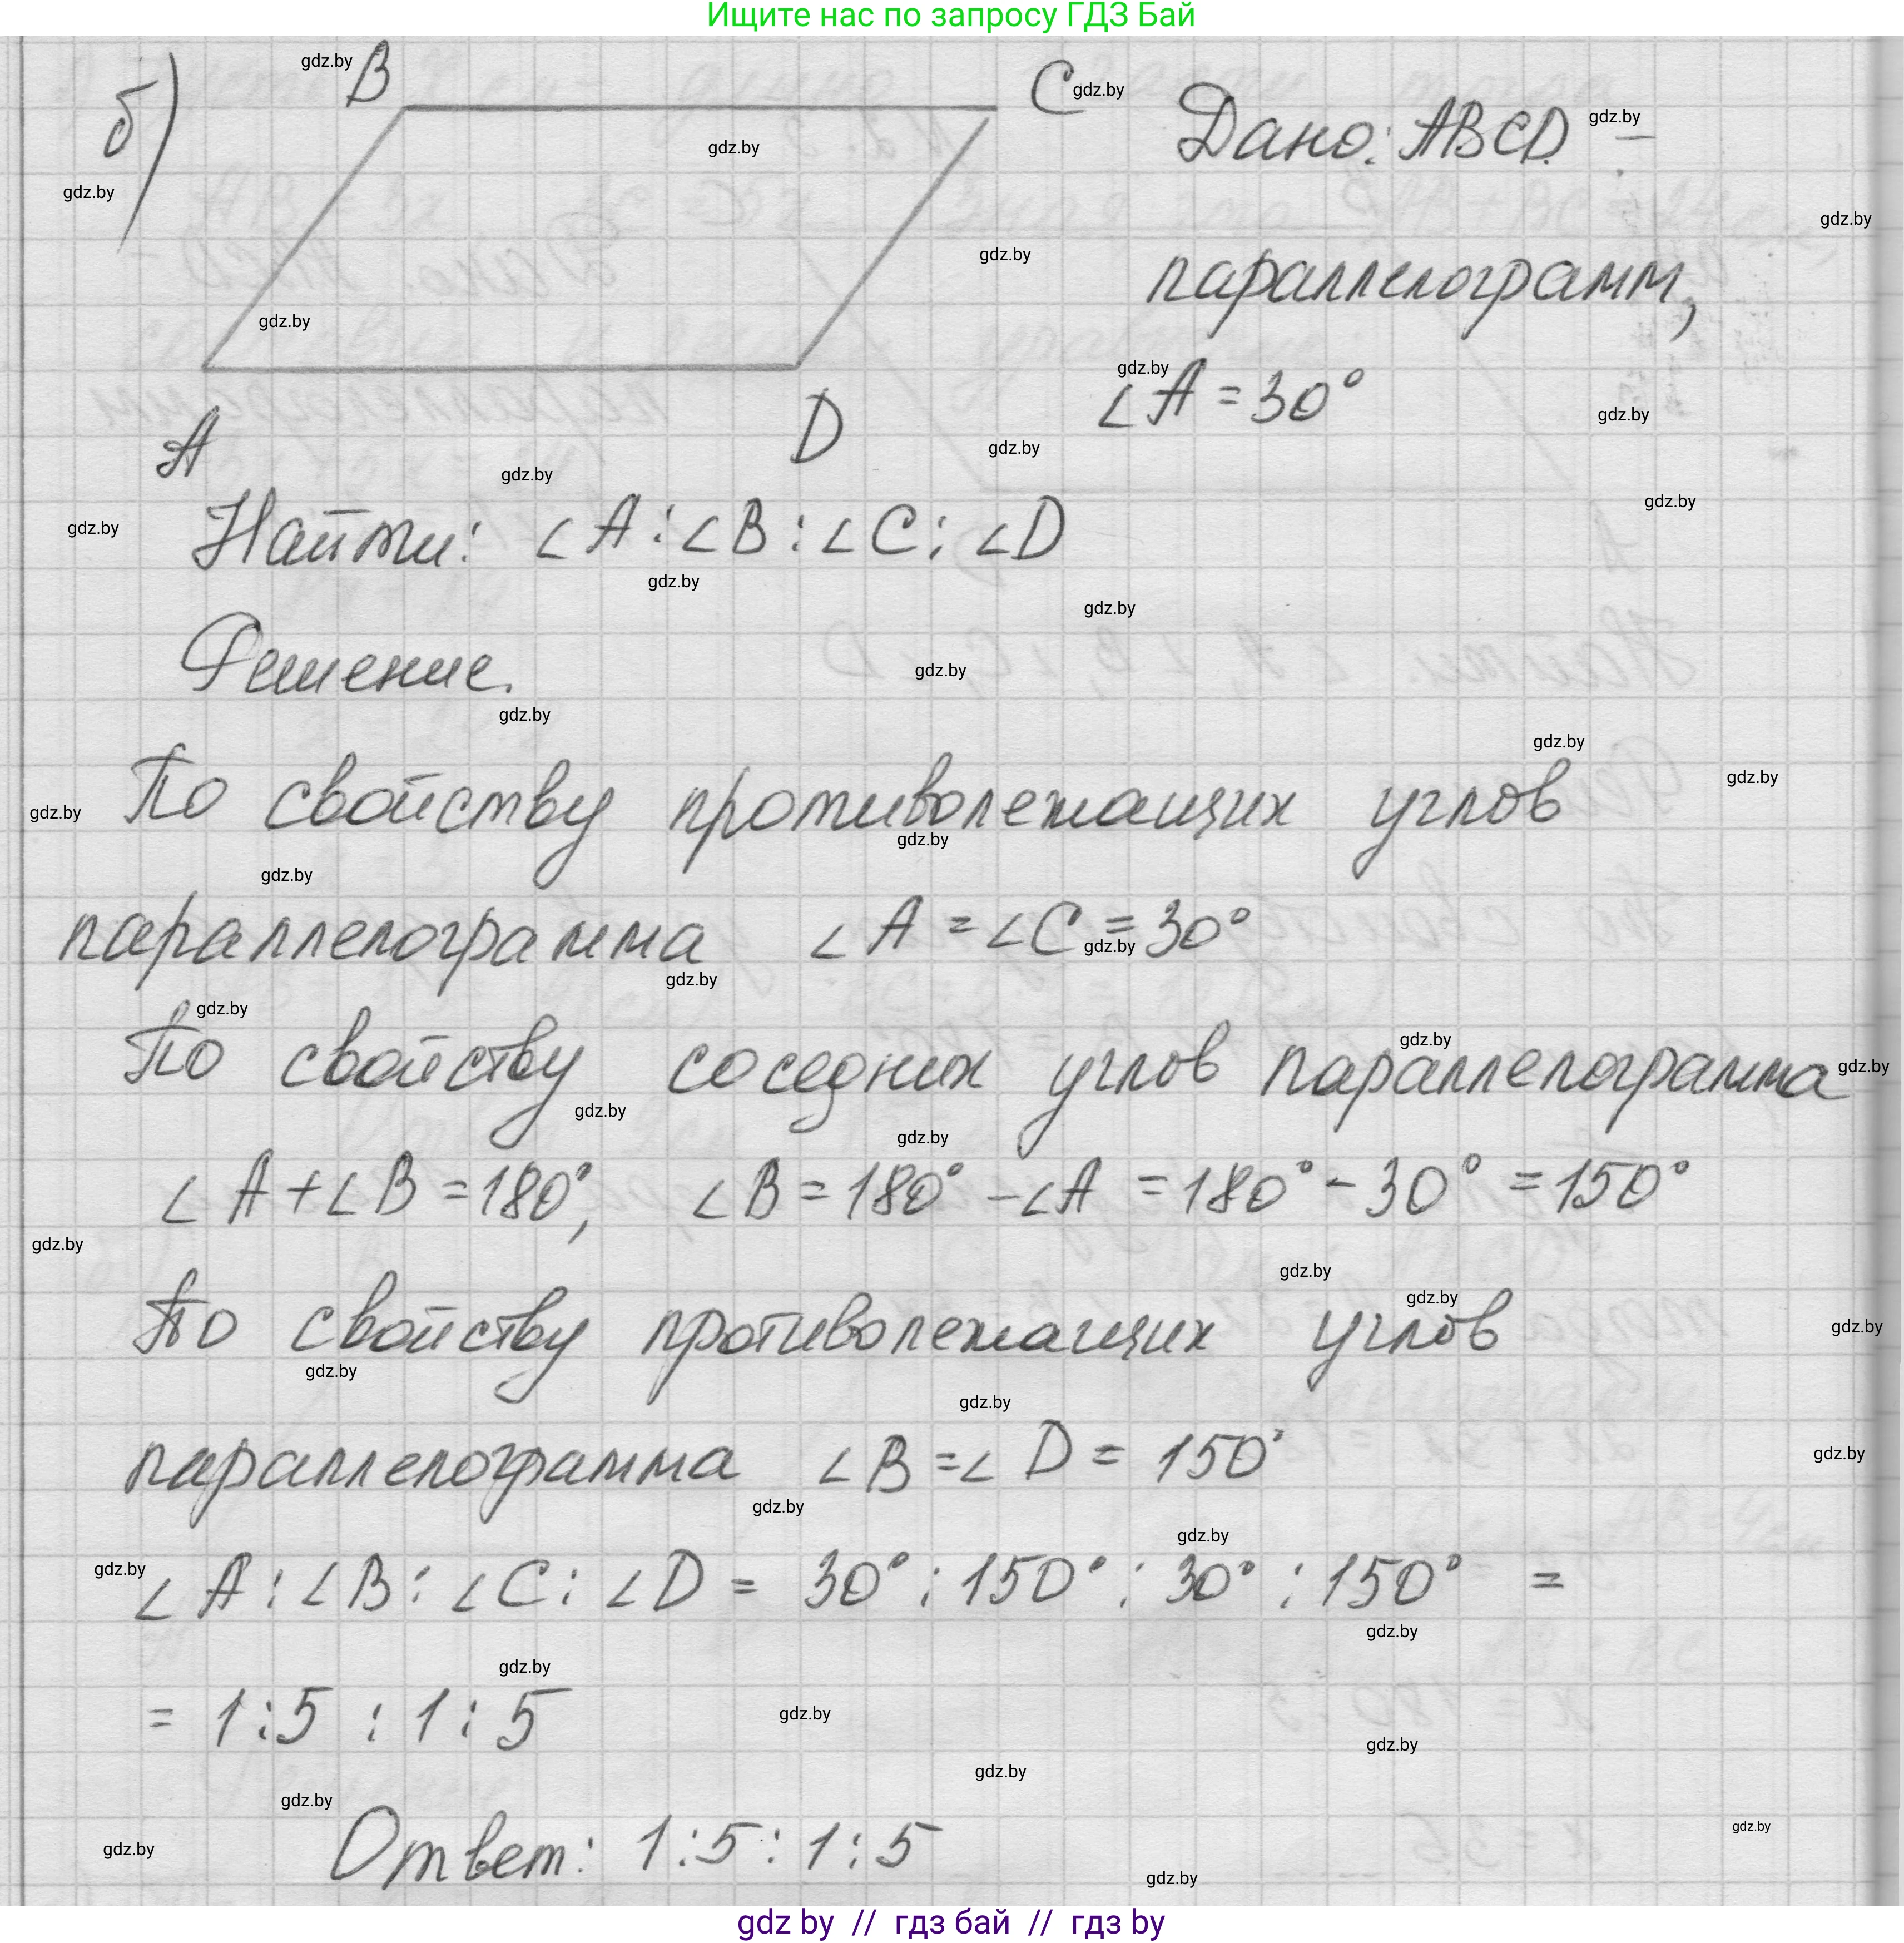 Ищите нас по запросу ГДЗ Бай
б)
B
C
Дано: ABCD –
параллелограмм,
∠A = 30°
A
D
Найти: ∠A : ∠B : ∠C : ∠D
Решение.
По свойству противолежащих углов
параллелограмма ∠A = ∠C = 30°
По свойству соседних углов параллелограмма
∠A + ∠B = 180°, ∠B = 180° – ∠A = 180° – 30° = 150°
По свойству противолежащих углов
параллелограмма ∠B = ∠D = 150°
∠A : ∠B : ∠C : ∠D = 30° : 150° : 30° : 150° =
= 1 : 5 : 1 : 5
Ответ: 1 : 5 : 1 : 5
gdz.by
gdz by // гдз бай // гдз by